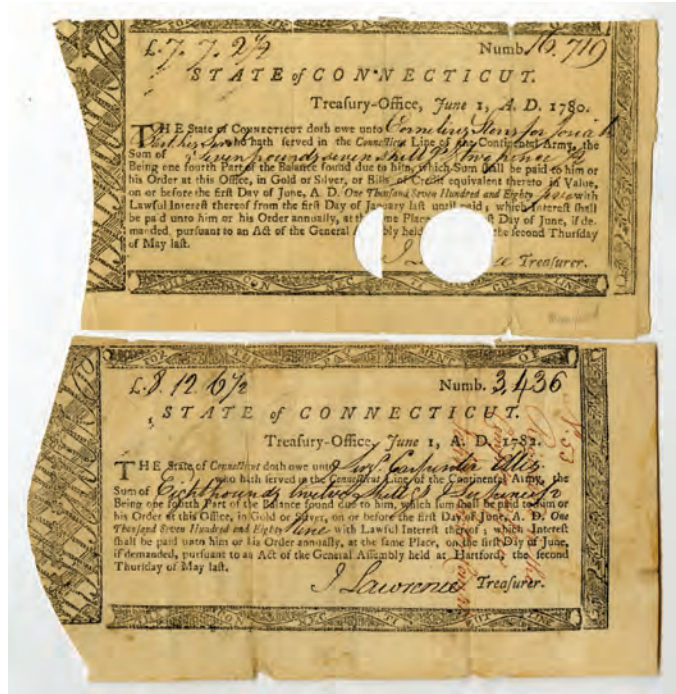 £. 7. 7. 2½ Numb. 16.719
STATE of CONNECTICUT.
Treaſury-Office, June 1, A. D. 1780.
THE State of CONNECTICUT doth owe unto
who hath ſerved in the Connecticut Line of the Continental Army, the
Sum of Seven pounds seven shill
Being one fourth Part of the Balance found due to him, which Sum ſhall be paid to him or
his Order at this Office, in Gold or Silver, or Bills of Credit equivalent thereto in Value,
on or before the firſt Day of June, A. D. One Thouſand Seven Hundred and Eighty with
Lawful Intereſt thereof from the firſt Day of January laſt until paid; which Intereſt ſhall
be paid unto him or his Order annually, at the ſame Place ſt Day of June, if de-
manded, purſuant to an Act of the General bly held the ſecond Thurſday
of May laſt.
J Treaſurer.
CON NEC TI CUT LINE
FOR THE PAY MENT OF
£. 8. 12. 6½ Numb. 3,436
STATE of CONNECTICUT.
Treaſury-Office, June 1, A. D. 1782.
THE State of Connecticut doth owe unto Carpenter Ellis
who hath ſerved in the Connecticut Line of the Continental Army, the
Sum of Eight pounds twelve shills & Six pence
Being one fourth Part of the Balance found due to him, which ſum ſhall be paid to him or
his Order at this Office, in Gold or Silver, on or before the firſt Day of June, A. D. One
Thouſand Seven Hundred and Eighty Nine with Lawful Intereſt thereof; which Intereſt
ſhall be paid unto him or his Order annually, at the ſame Place, on the firſt Day of June,
if demanded, purſuant to an Act of the General Aſſembly held at Hartford the ſecond
Thurſday of May laſt.
J Lawrence Treaſurer.
CON NEC TI CUT LINE